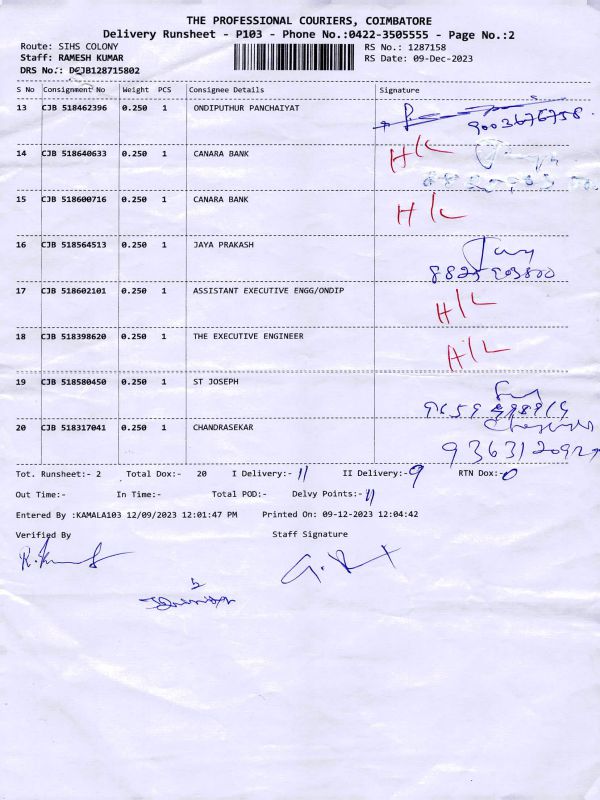 THE PROFESSIONAL COURIERS, COIMBATORE
Delivery Runsheet - P103 - Phone No.:0422-3505555 - Page No.:2
Route: SIHS COLONY RS No.: 1287158
Staff: RAMESH KUMAR RS Date: 09-Dec-2023
DRS No.: DCJB128715802
S No Consignment No Weight PCS Consignee Details Signature
13 CJB 518462396 0.250 1 ONDIPUTHUR PANCHAIYAT
9003676758
14 CJB 518640633 0.250 1 CANARA BANK H/L
15 CJB 518600716 0.250 1 CANARA BANK H/L
16 CJB 518564513 0.250 1 JAYA PRAKASH
17 CJB 518602101 0.250 1 ASSISTANT EXECUTIVE ENGG/ONDIP H/L
18 CJB 518398620 0.250 1 THE EXECUTIVE ENGINEER H/L
19 CJB 518580450 0.250 1 ST JOSEPH
20 CJB 518317041 0.250 1 CHANDRASEKAR
Tot. Runsheet:- 2 Total Dox:- 20 I Delivery:- 11 II Delivery:- 9 RTN Dox:- 0
Out Time:- In Time:- Total POD:- Delvy Points:- 11
Entered By :KAMALA103 12/09/2023 12:01:47 PM Printed On: 09-12-2023 12:04:42
Verified By Staff Signature